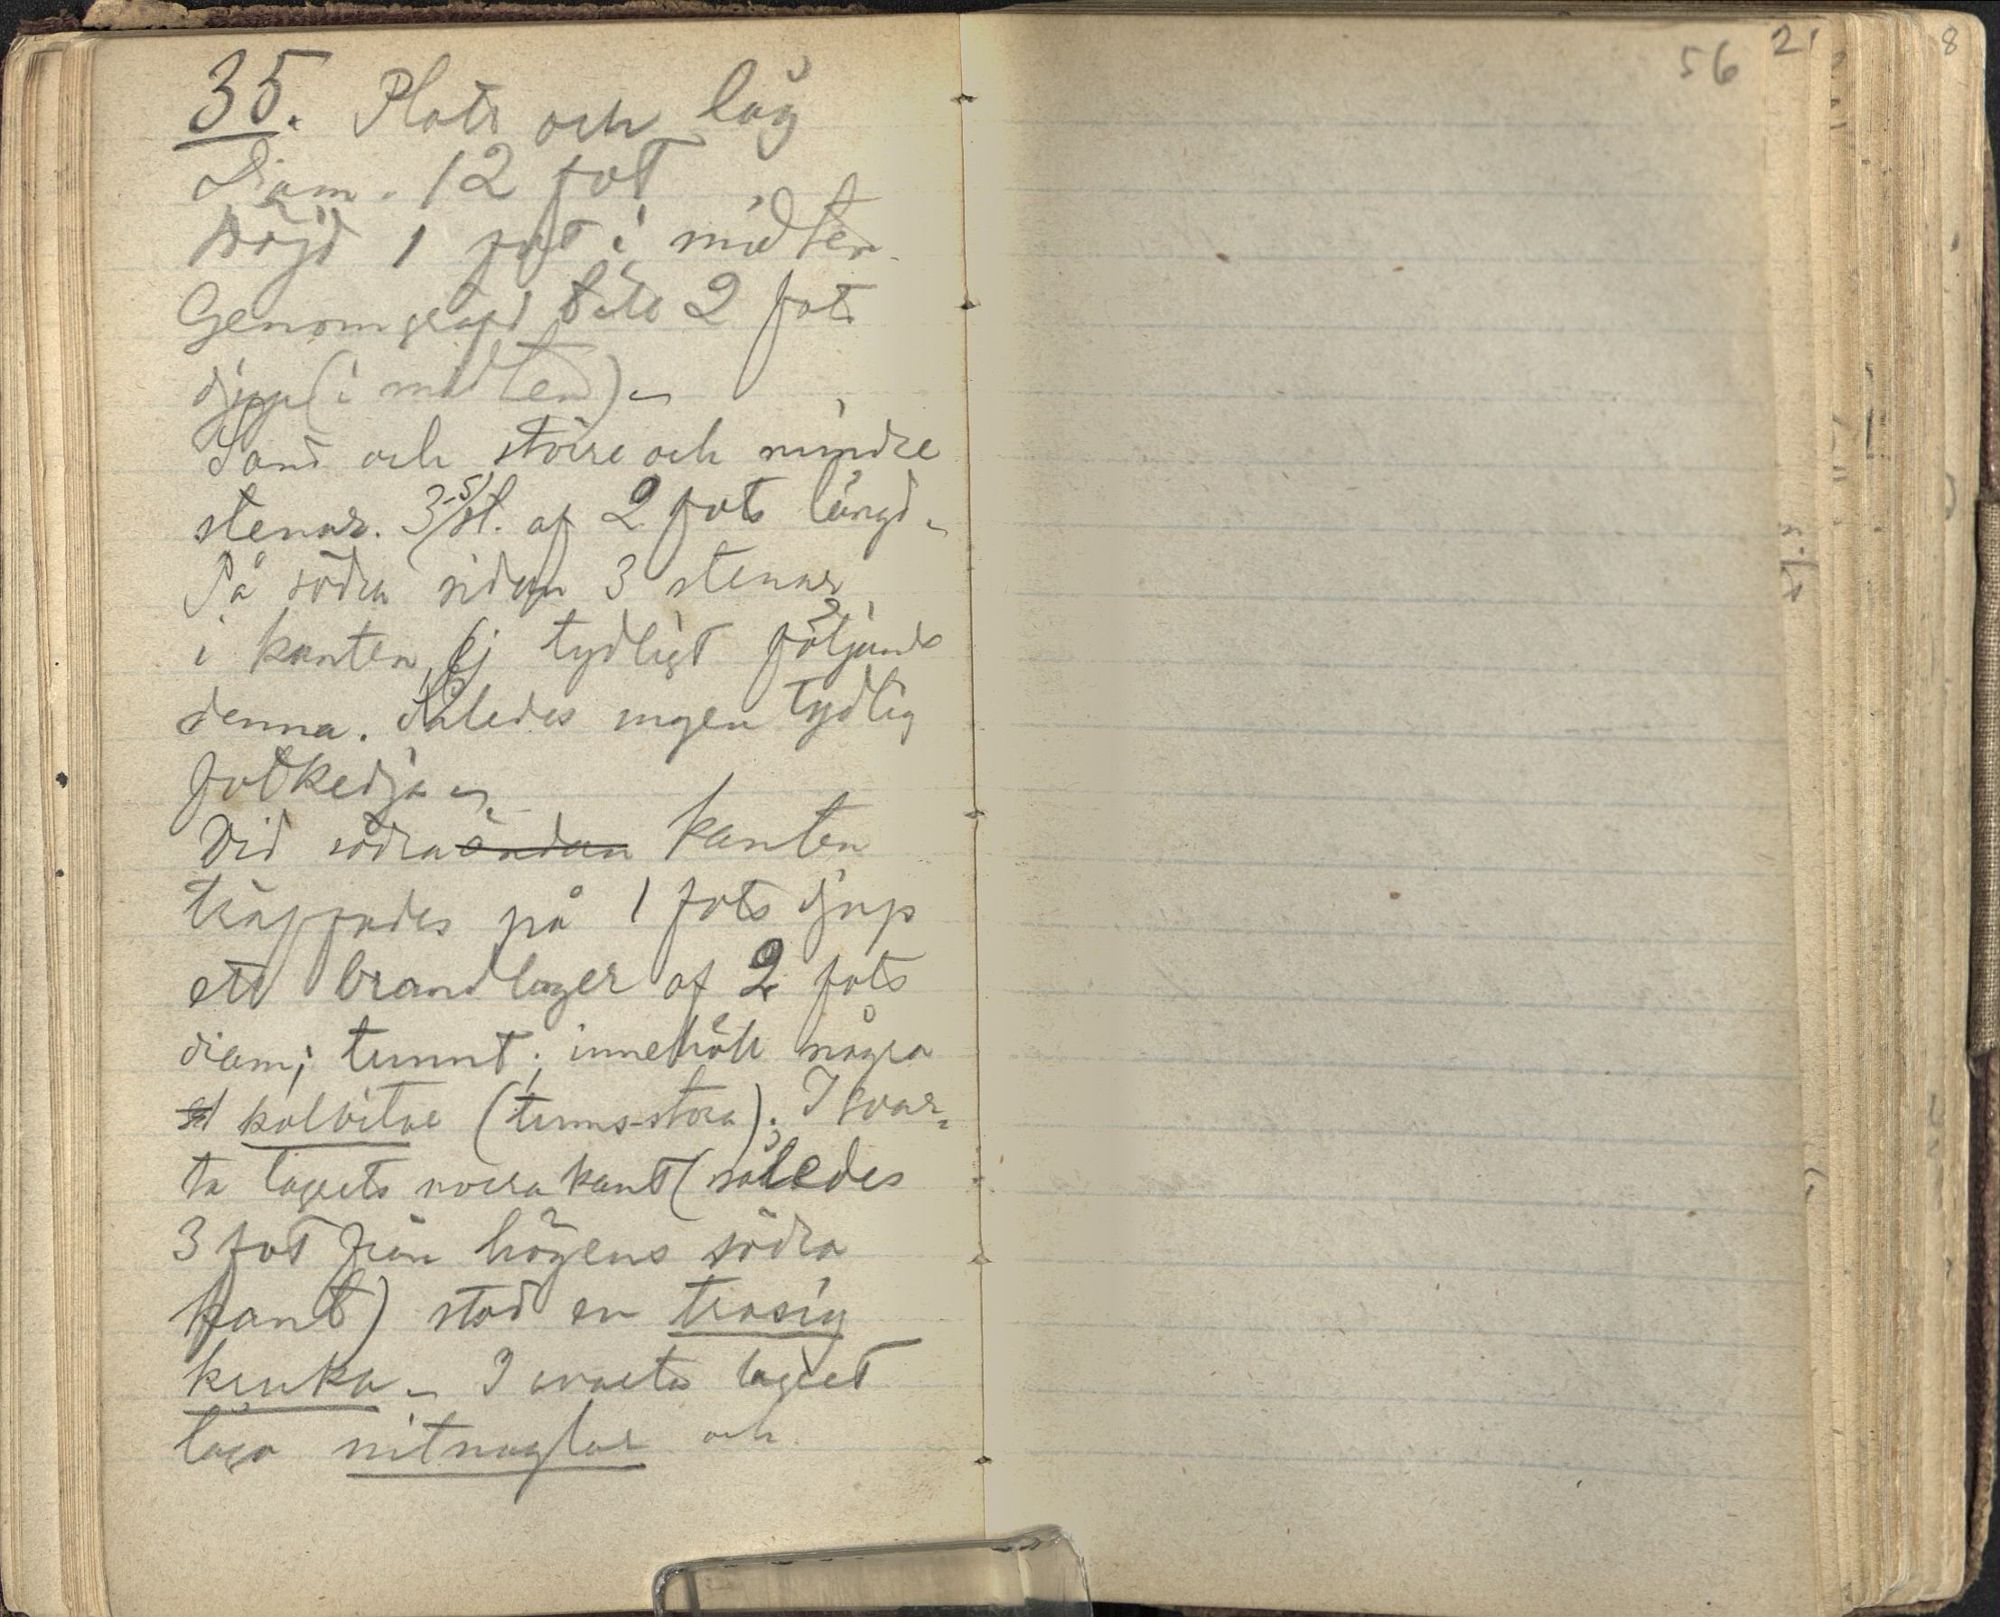 35. Platt och låg
Diam. 12 fot
Höjd 1 fot i midten.
Genomgräfd till 2 fots
djup (i midten) -
Sand och större och mindre
stenar. 3-5 st. af 2 fots längd -
På södra sidan 3 stenar
i kanten, ej tydligt följande
denna. Således ingen tydlig
fotkedja -
Vid södra ändan kanten
träffades på 1 fots djup
ett brandlager af 2 fots
diam; tunnt; innehöll några
st kolbitar (tums-stora). I svar-
ta lagrets norra kant (således
3 fot från högens södra
kant) stod en trasig
kruka - I svarta lagret
lågo nitnaglar och
56
21
8